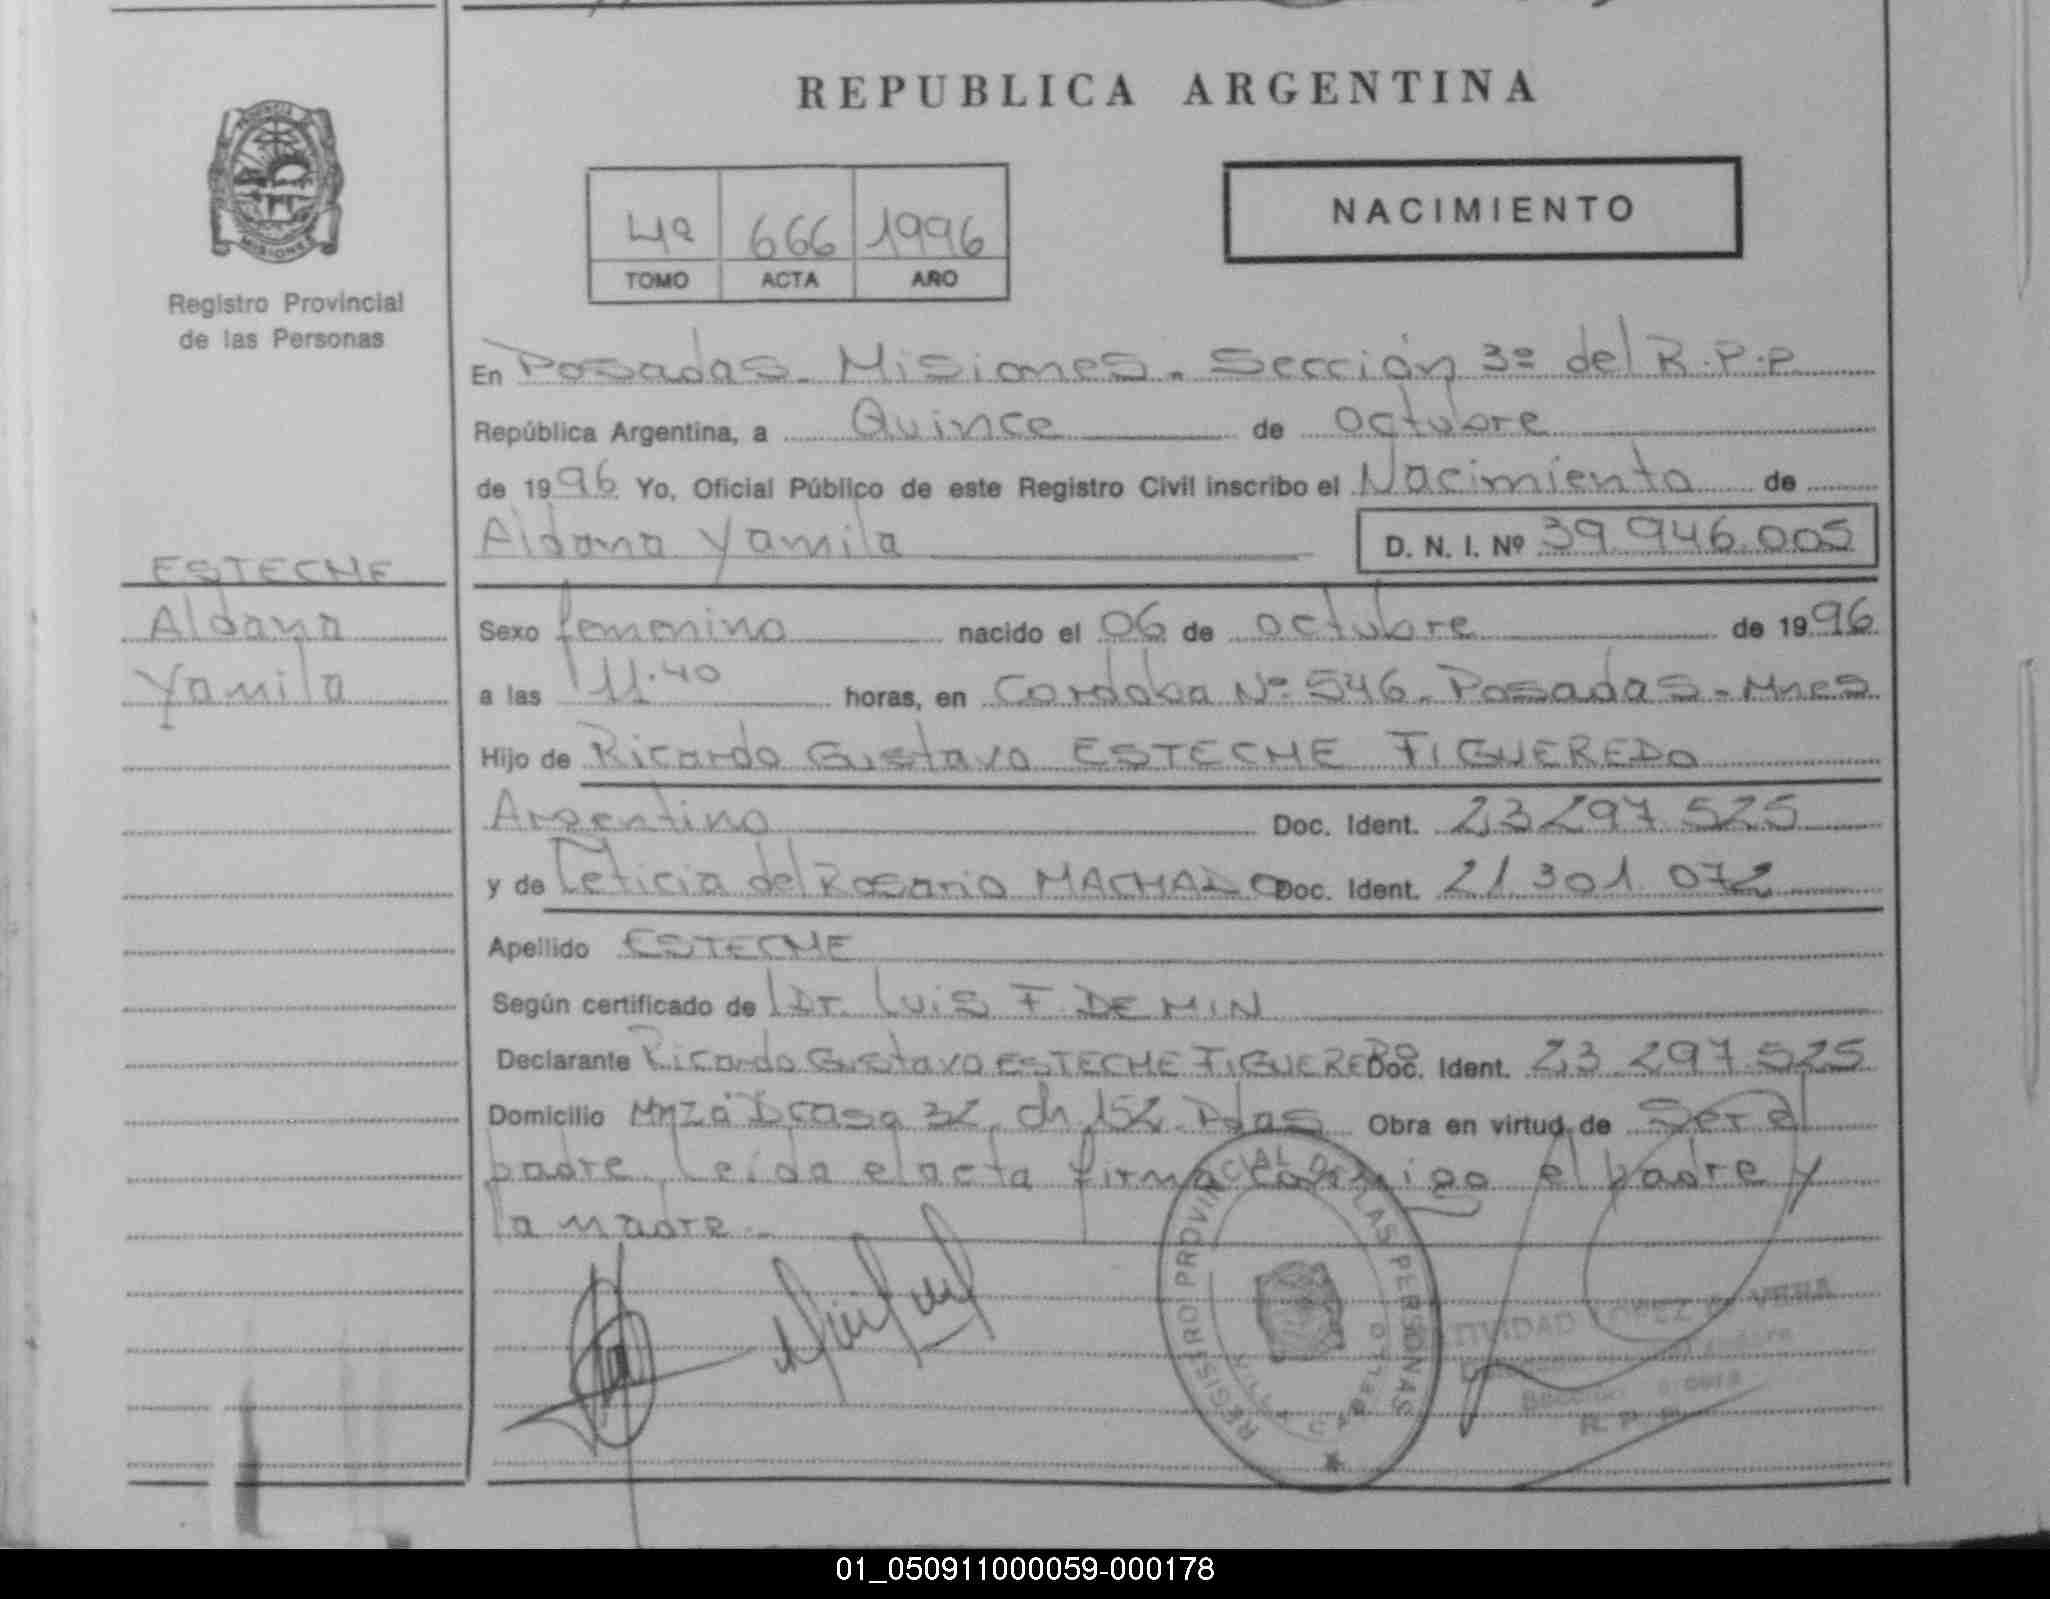 REPUBLICA ARGENTINA
PROVINCIA
MISIONES
Registro Provincial
de las Personas
4º 666 1996
TOMO ACTA AÑO
NACIMIENTO
En Posadas - Misiones - Sección 3º del R.P.P.
República Argentina, a Quince de octubre
de 1996 Yo, Oficial Público de este Registro Civil inscribo el Nacimiento de
Aldana Yamila D. N. I. Nº 39.946.005
ESTECHE
Aldana
Yamila
Sexo femenino nacido el 06 de octubre de 1996
a las 11.40 horas, en Cordoba Nº 546 - Posadas - Mnes
Hijo de Ricardo Gustavo ESTECHE FIGUEREDO
Argentino Doc. Ident. 23 297 525
y de Leticia del Rosario MACHADO Doc. Ident. 21.301.072
Apellido ESTECHE
Según certificado de Dr. Luis F. DEMIN
Declarante Ricardo Gustavo ESTECHE FIGUEREDO Doc. Ident. 23 297 525
Domicilio Mnza casa 32 ch 152 - Pdas Obra en virtud de Ser el
padre. Leída el acta firma conmigo el padre y
la madre. -
REGISTRO PROVINCIAL DE LAS PERSONAS
LOPEZ VERA
R. P. P.
01_050911000059-000178